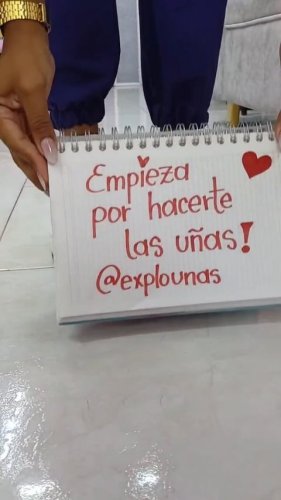 Empieza
por hacerte
las uñas!
@explounas